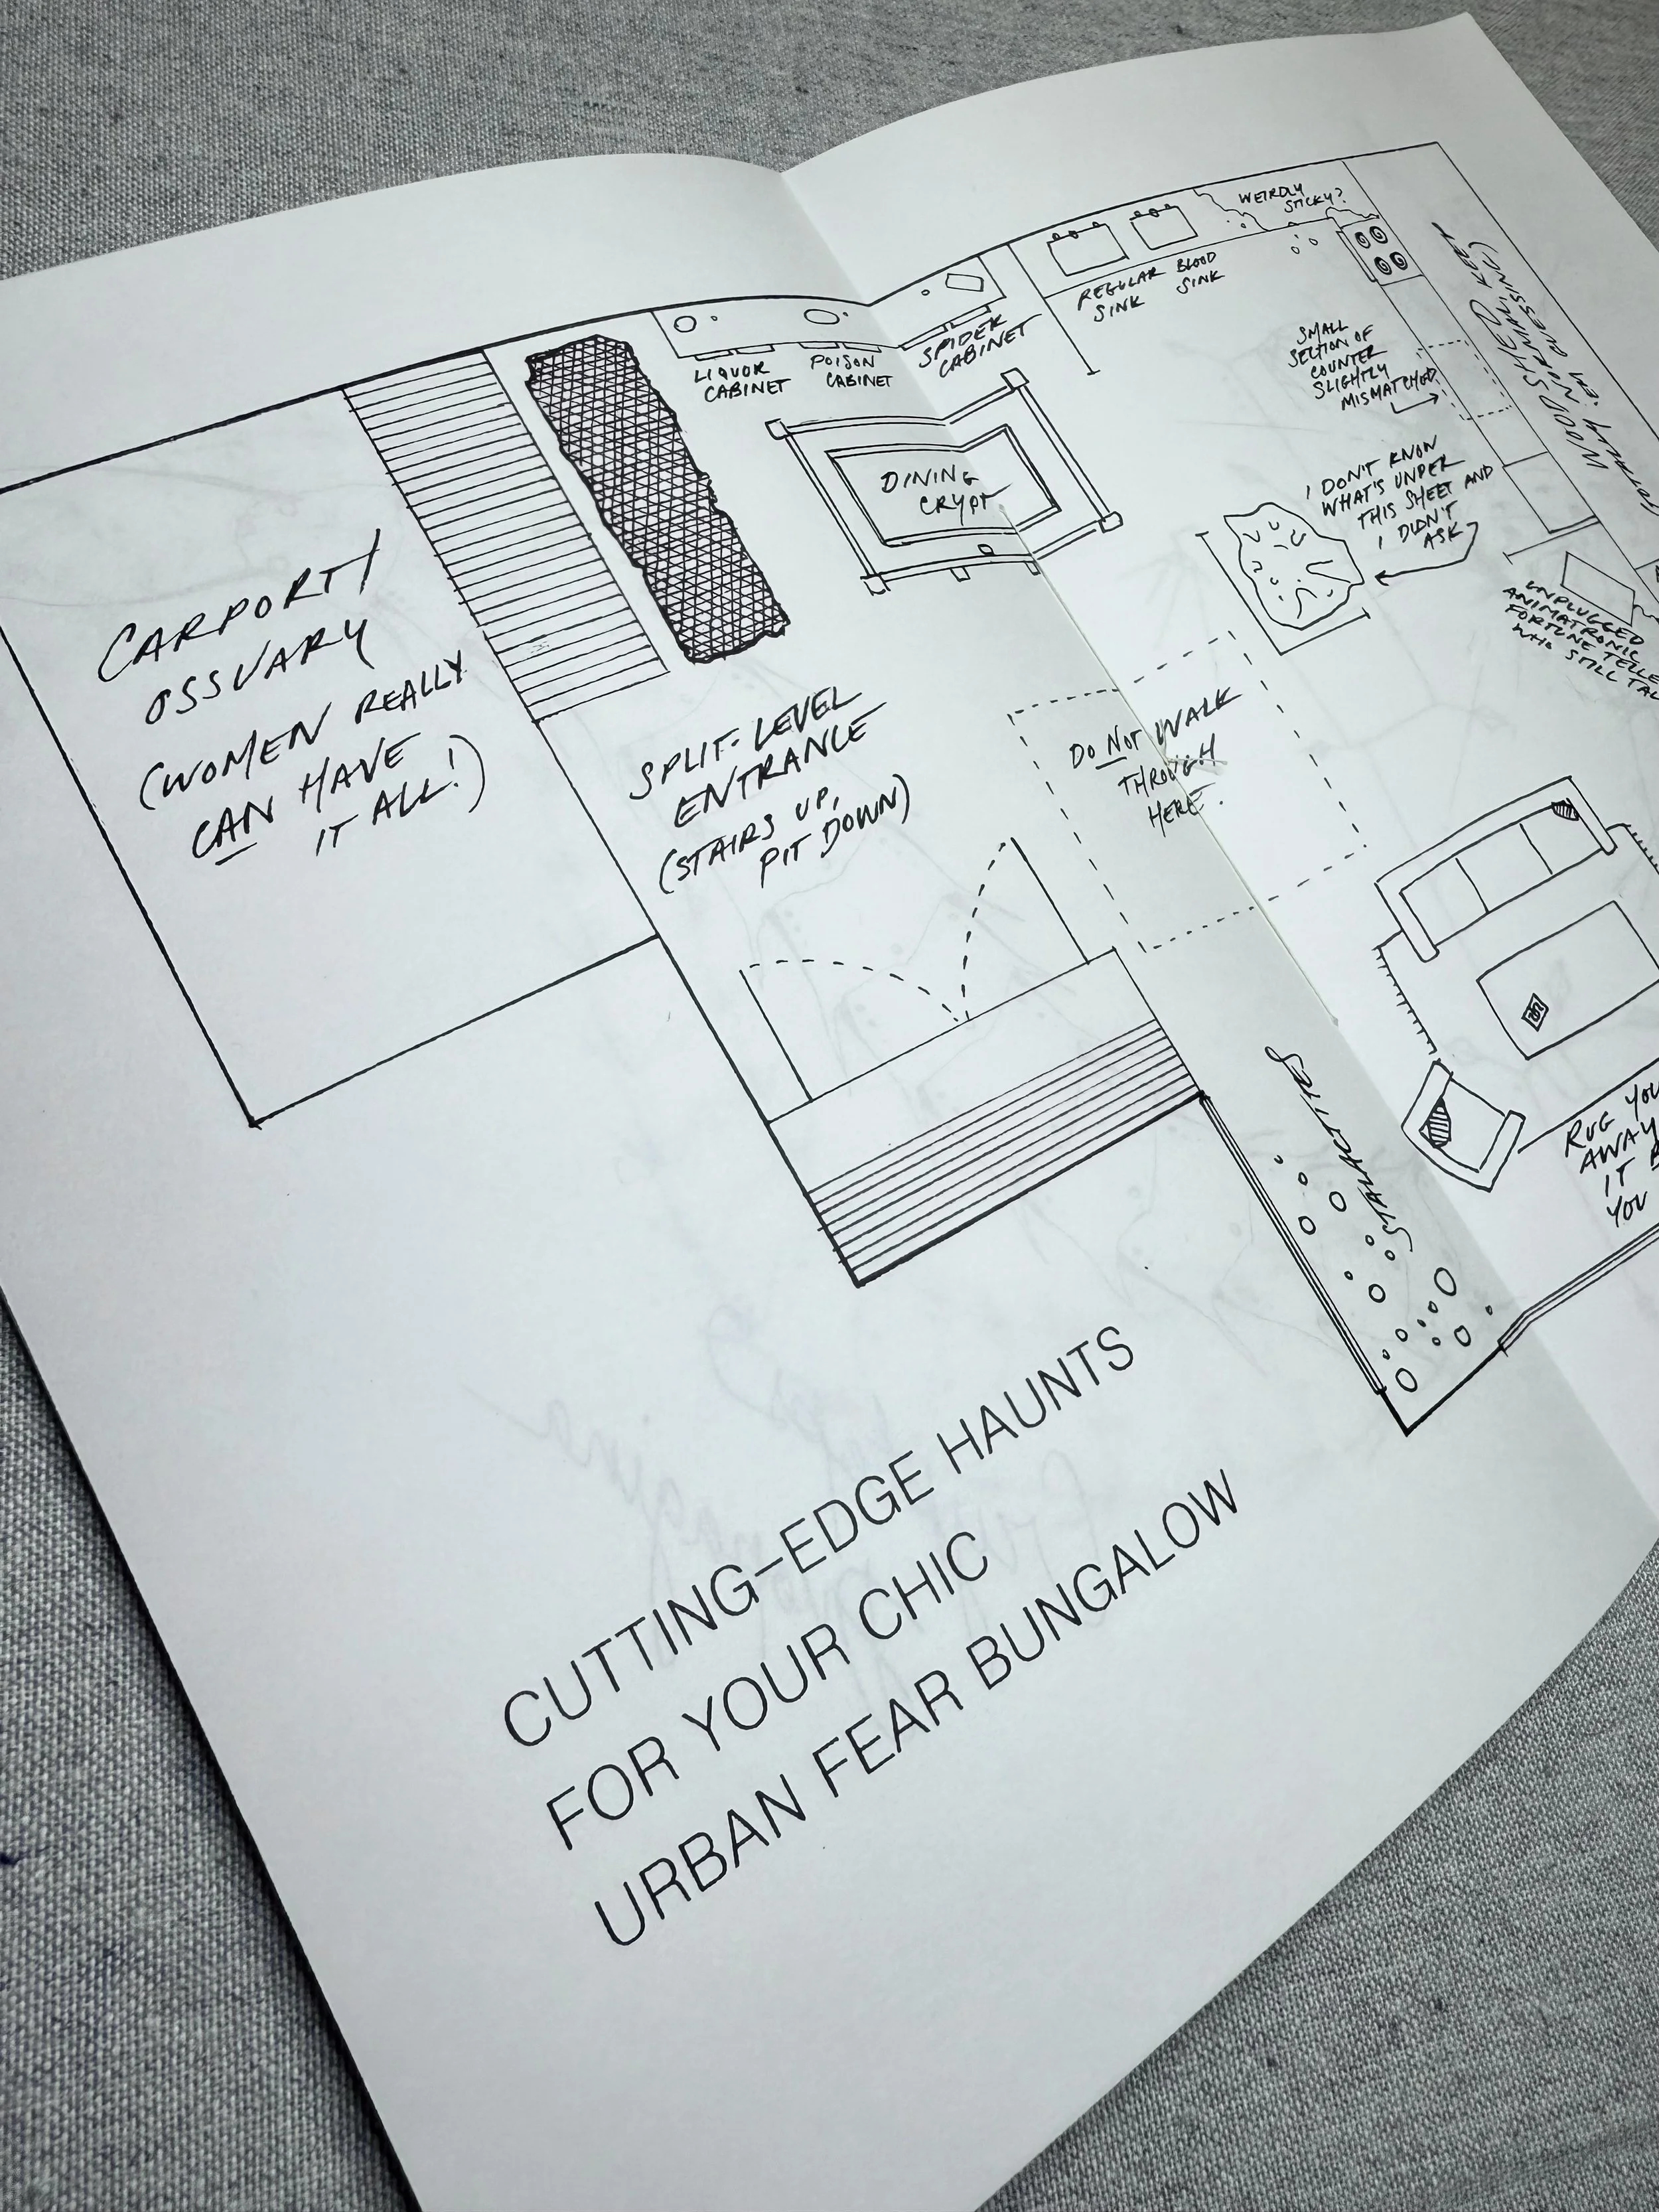 CARPORT/
OSSUARY
(WOMEN REALLY
CAN HAVE
IT ALL!)
SPLIT-LEVEL
ENTRANCE
(STAIRS UP,
PIT DOWN)
LIQUOR
CABINET
POISON
CABINET
SPIDER
CABINET
DINING
CRYPT
REGULAR
SINK
BLOOD
SINK
WEIRDLY
STICKY?
SMALL
SECTION OF
COUNTER
SLIGHTLY
MISMATCHED
WOODSHED
(TOTALLY NORMAL, KEEP
'EM GUESSING!)
I DON'T KNOW
WHAT'S UNDER
THIS SHEET AND
I DIDN'T
ASK
UNPLUGGED
ANIMATRONIC
FORTUNE
WHO STILL
DO NOT WALK
THROUGH
HERE.
STALACTITES
RUG
AWAY
IT
YOU
CUTTING-EDGE HAUNTS
FOR YOUR CHIC
URBAN FEAR BUNGALOW